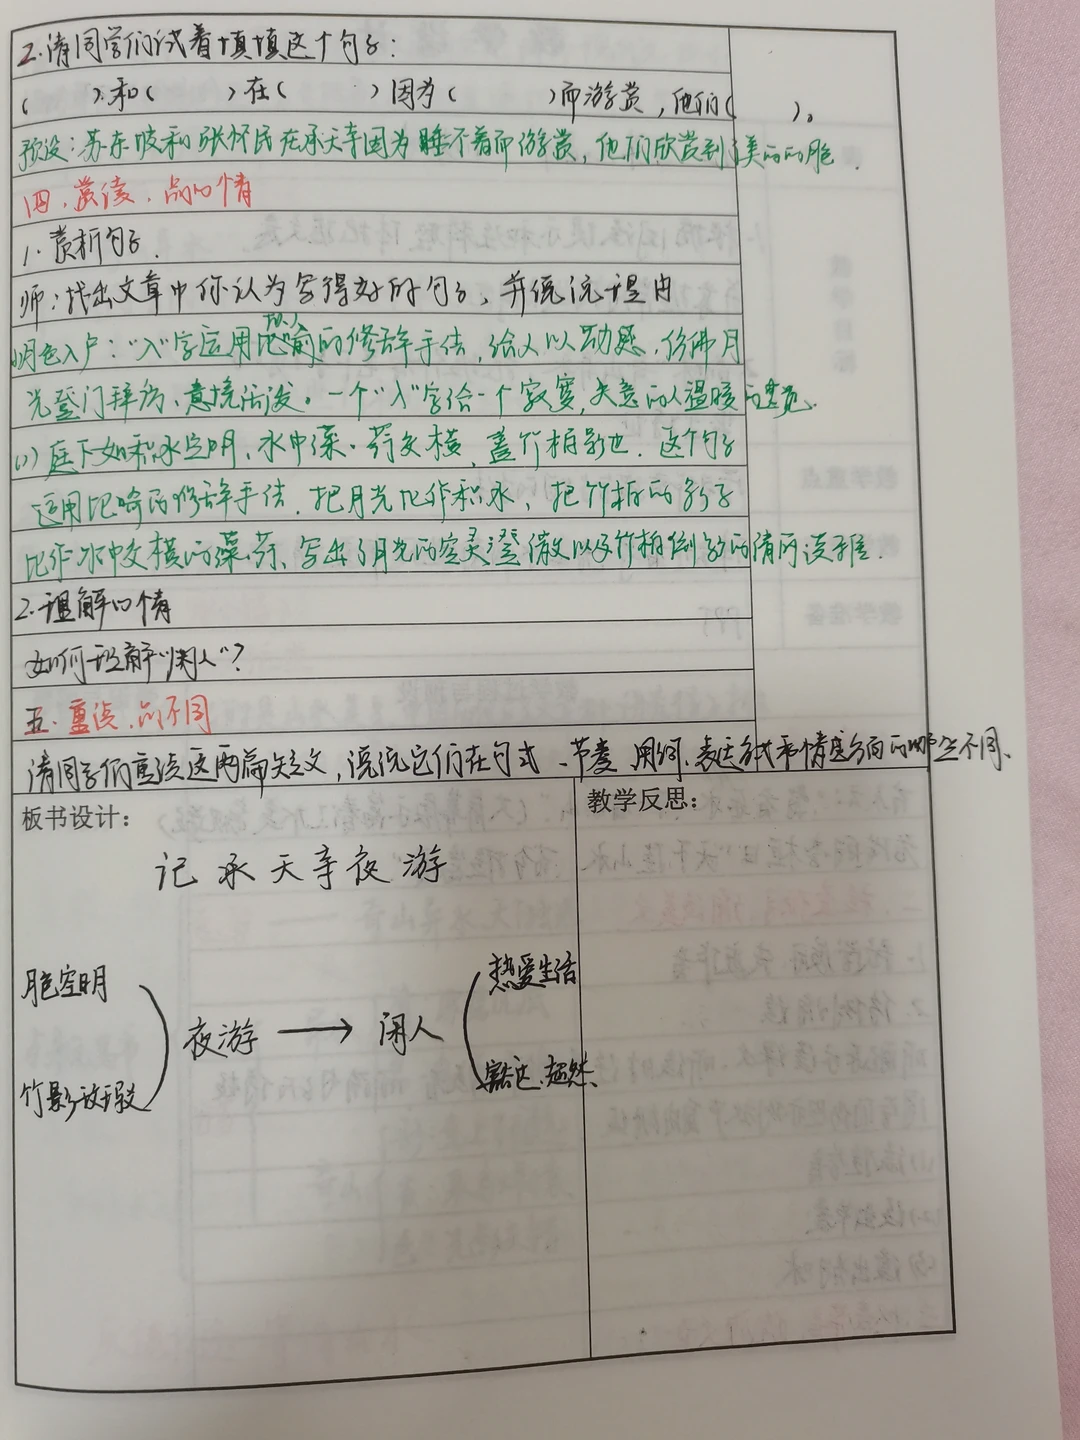 2.请同学们试着填填这个句子:
( )和( )在( )因为( )而游赏,他们( )。
预设:苏东坡和张怀民在承天寺因为睡不着而游赏,他们欣赏到了美丽的月色.
四、赏读,品心情
1.赏析句子.
师:找出文章中你认为写得好的句子,并说说理由
月色入户:"入"字运用拟人的修辞手法,给人以动感,仿佛月
光登门拜访,意境活泼。一个"入"字给一个寂寞,失意的人温暖的
(1)庭下如积水空明,水中藻、荇交横,盖竹柏影也.这个句子
运用比喻的修辞手法,把月光比作积水,把竹柏的影子
比作水中交横的藻、荇,写出了月光的空灵澄澈以及竹柏倒影的清丽淡雅.
2.理解心情
如何理解"闲人"?
五.重读,品不同
请同学们重读这两篇短文,说说它们在句式、节奏、用词、表达方式和情感方面的哪些不同、
板书设计:
教学反思:
记承天寺夜游
月色空明
竹影斑驳
夜游 → 闲人
热爱生活
豁达、超然
教学重点
教学准备